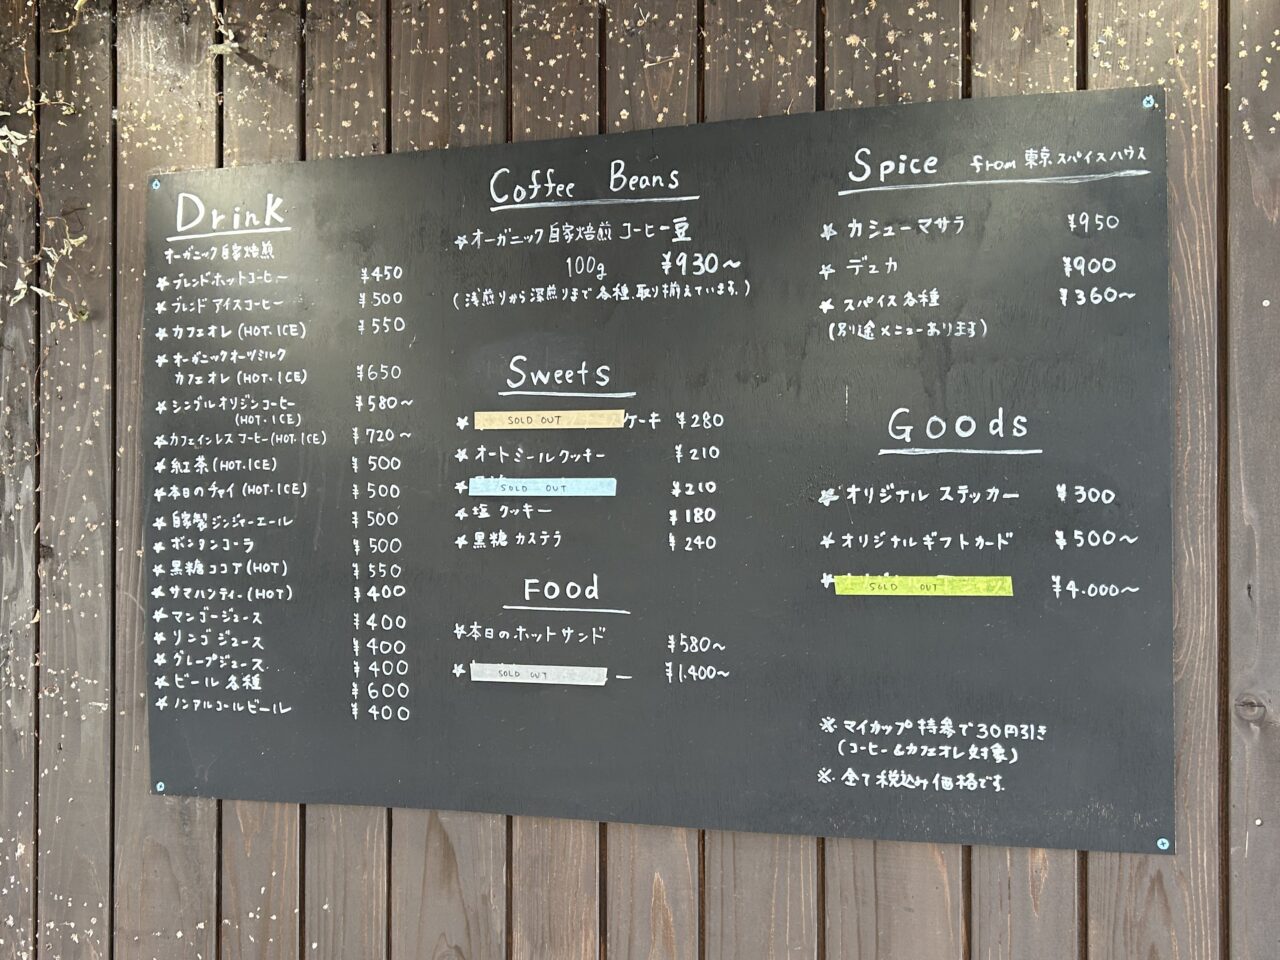 Drink
オーガニック自家焙煎
★ブレンドホットコーヒー ¥450
★ブレンド アイスコーヒー ¥500
★カフェオレ (HOT.ICE) ¥550
★オーガニックオーツミルク
カフェオレ (HOT.ICE) ¥650
★シングルオリジンコーヒー ¥580〜
(HOT.ICE)
★カフェインレスコーヒー(HOT.ICE) ¥720〜
★紅茶(HOT.ICE) ¥500
★本日のチャイ(HOT.ICE) ¥500
★自家製ジンジャーエール ¥500
★ボンタンコーラ ¥500
★黒糖ココア(HOT) ¥550
★サマハンティー(HOT) ¥400
★マンゴージュース ¥400
★リンゴジュース ¥400
★グレープジュース ¥400
★ビール各種 ¥600
★ノンアルコールビール ¥400
Coffee Beans
★オーガニック自家焙煎 コーヒー豆
100g ¥930〜
(浅煎りから深煎りまで各種、取り揃えています。)
Sweets
★ SOLD OUT ケーキ ¥280
★オートミールクッキー ¥210
★ SOLD OUT ¥210
★塩クッキー ¥180
★黒糖カステラ ¥240
Food
★本日のホットサンド ¥580〜
★ SOLD OUT ー ¥1.400〜
Spice from 東京スパイスハウス
★カシューマサラ ¥950
★デュカ ¥900
★スパイス各種 ¥360〜
(別途メニューあります)
Goods
★オリジナル ステッカー ¥300
★オリジナルギフトカード ¥500〜
★ SOLD OUT ¥4.000〜
※マイカップ持参で30円引き
(コーヒー&カフェオレ対象)
※全て税込み価格です。